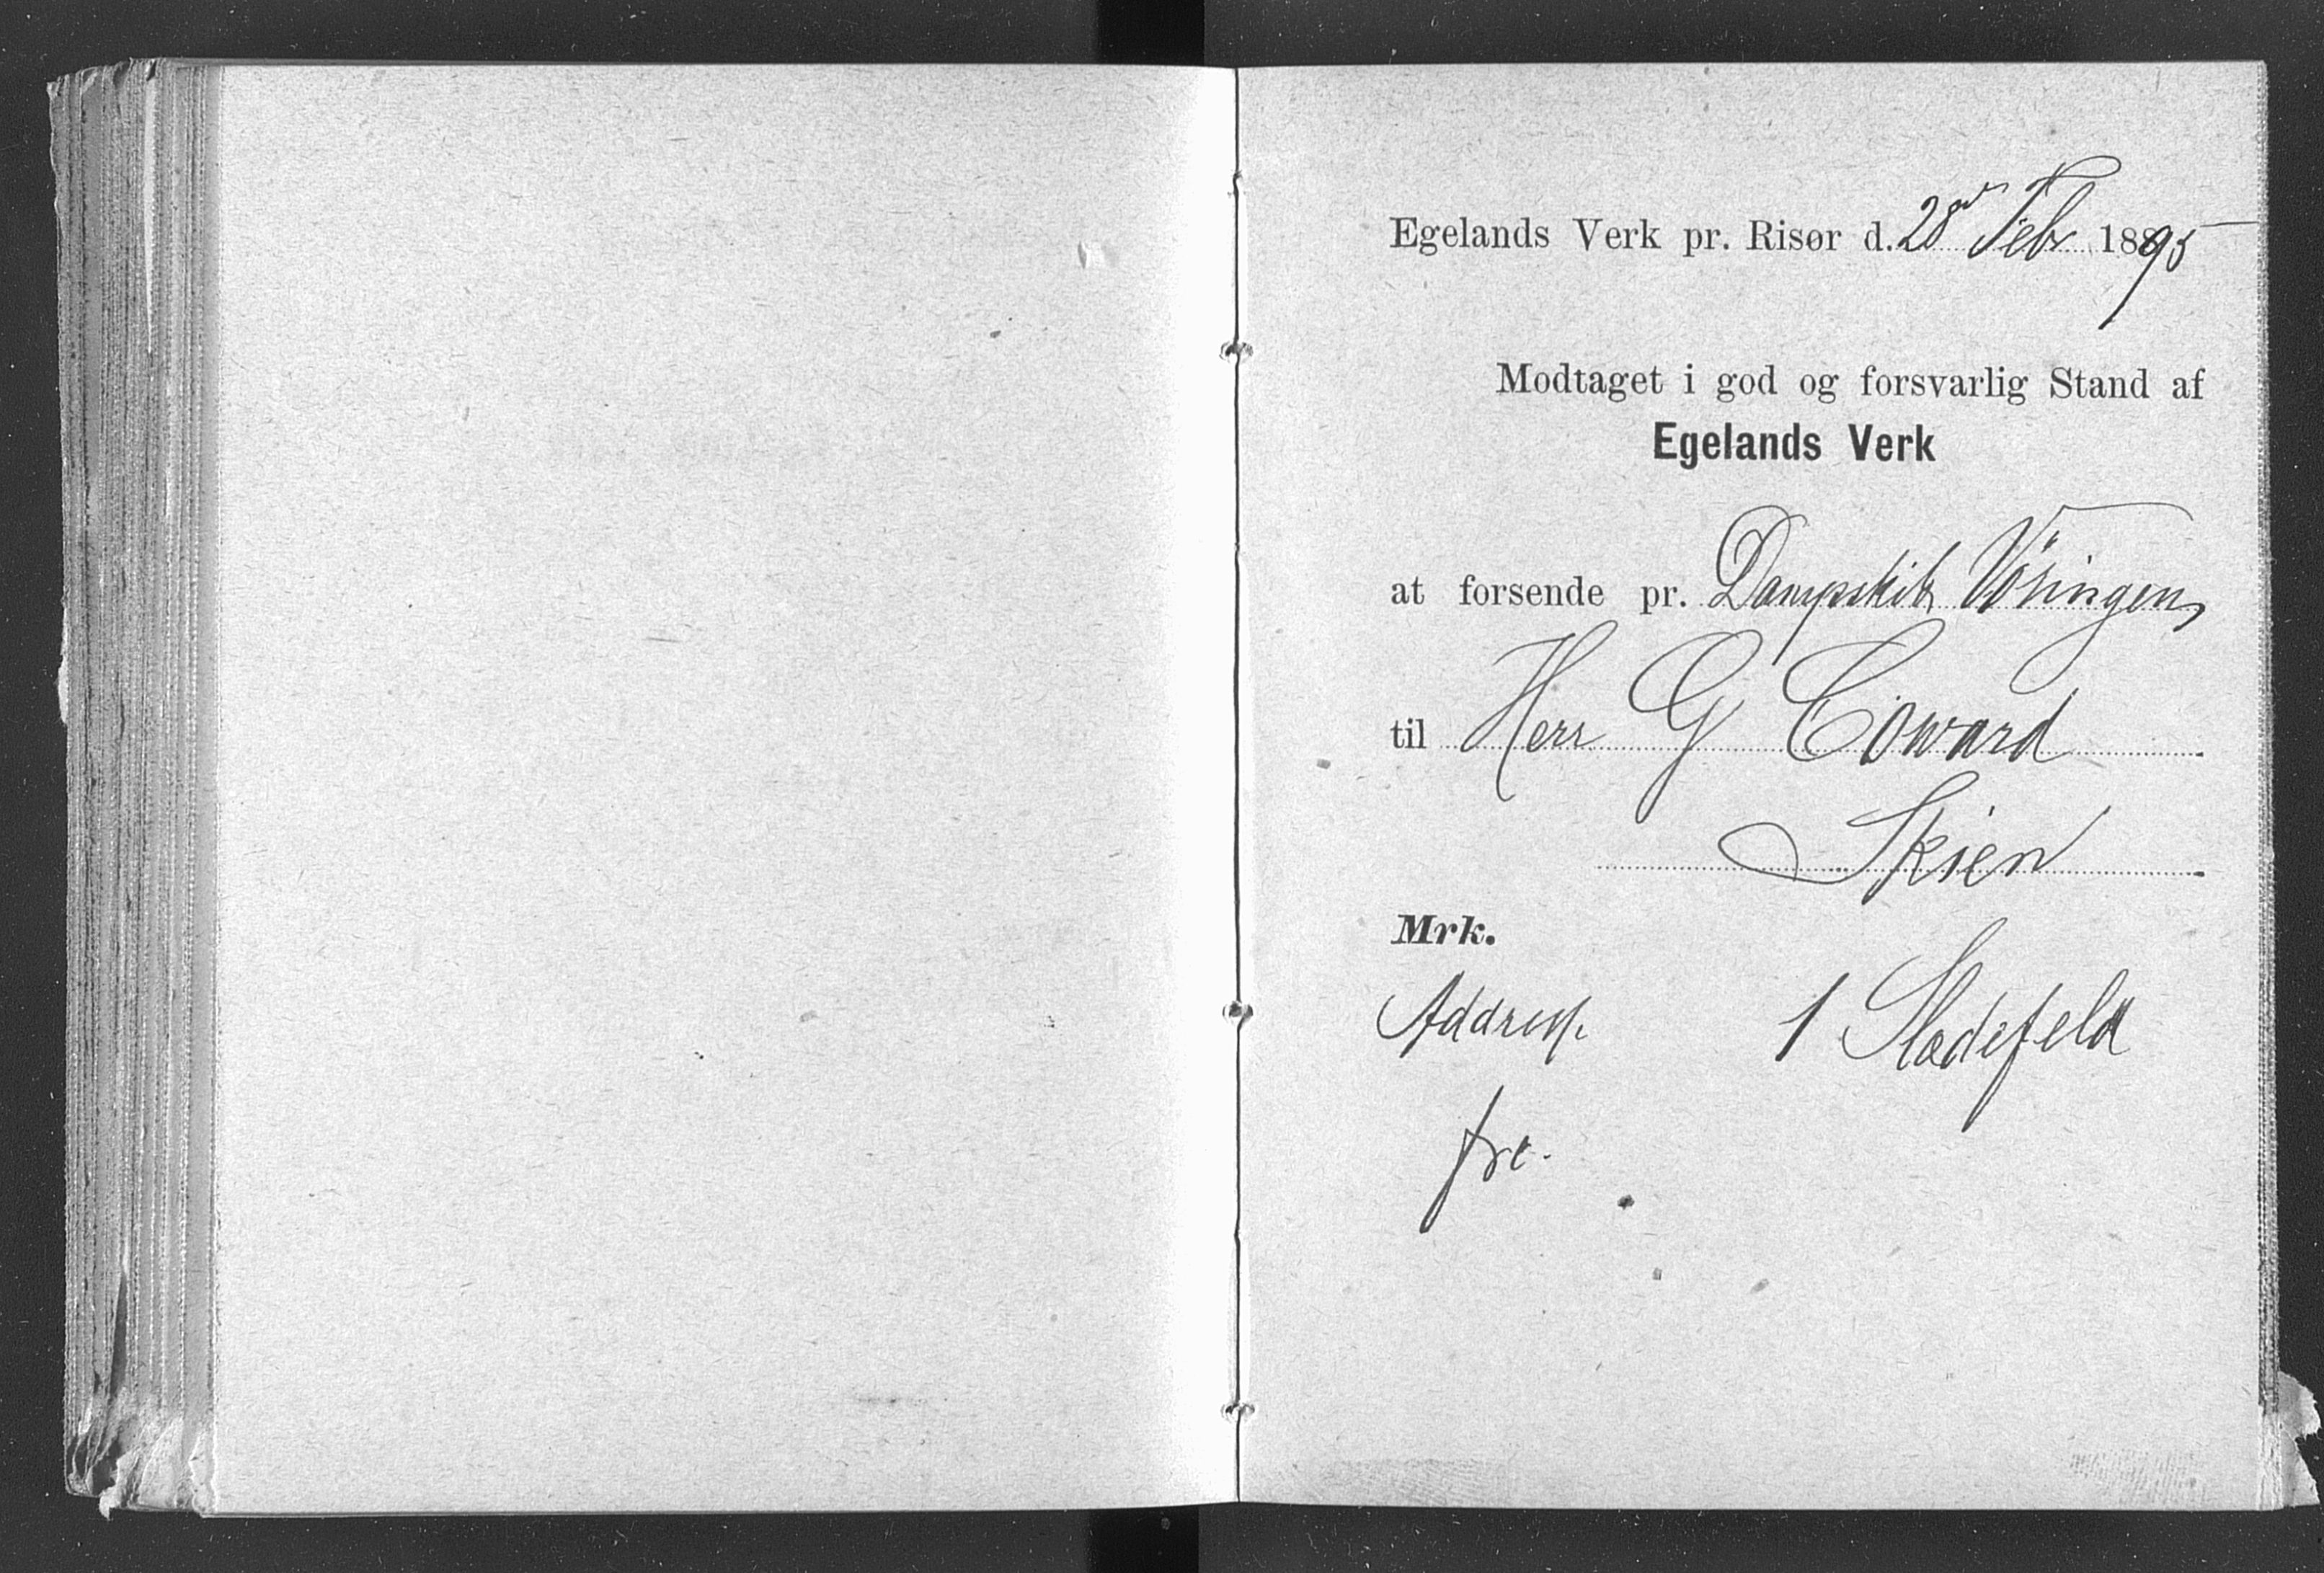 Egelands Verk pr. Risør d. 28de Febr 1895
Modtaget i god og forsvarlig Stand af
Egelands Verk
at forsende pr. Dampskib Vöringen
til Herr G Coward
Skien
Mrk.
Address. 1 Slædefeld
frc.